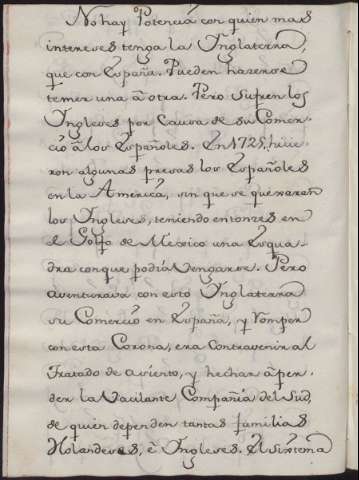 No hay Potencia con quien mas
intereses tenga la Ynglaterra,
que con España. Pueden hazerse
temer una â otra. Pero sufren los
Yngleses por Causa de su Comer-
cio â los Españoles. En 1725, hizie-
ron algunas presas los Españoles
en la America, sin que se quexaran
los Yngleses, teniendo entonzes en
el Golfo de Mexico una Esqua-
dra con que podia Vengarse. Pero
aventurava con esto Ynglaterra
su Comercio en España, y romper
con esta Corona, era Contravenir al
Tratado de asiento, y hechar â per-
der la Vacilante Compañia del Sud,
de quien dependen tantas familias
Holandesas, è Yngleses. El sistema